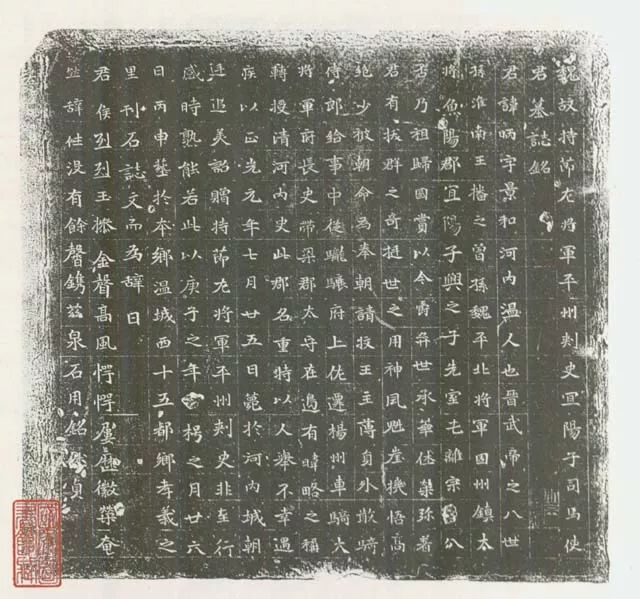 魏故持節左將軍平州刺史宜陽子司馬使
君墓誌銘
君諱昞字景和河內溫人也晉武帝之八世
孫淮南王播之曾孫魏平北將軍固州鎮大
將魚陽郡宜陽子興之子先室屯離宗胄分
否乃祖歸國賞以今爵弈世承華休榮弥著
君有拔群之奇挺世之用神風魁崖機悟高
絕少被朝命為奉朝請牧王主薄員外散騎
侍郎給事中從驤驤府上佐遷楊州車騎大
將軍府長史帶梁郡太守在邊有暐略之稱
轉授清河內史此郡名重特以人舉不幸遇
疾以正光元年七月廿五日薨於河內城朝
廷追美詔贈持節左將軍平州刺史非至行
感時熟能若此以庚子之年枵之月廿六
日丙申葬於本鄉溫城西十五都鄉孝義之
里刊石誌文而為辭曰
君侯烈烈玉操金聲高風愕愕屢歷徽榮奄
辭世没有餘馨鐫茲泉石用銘貞